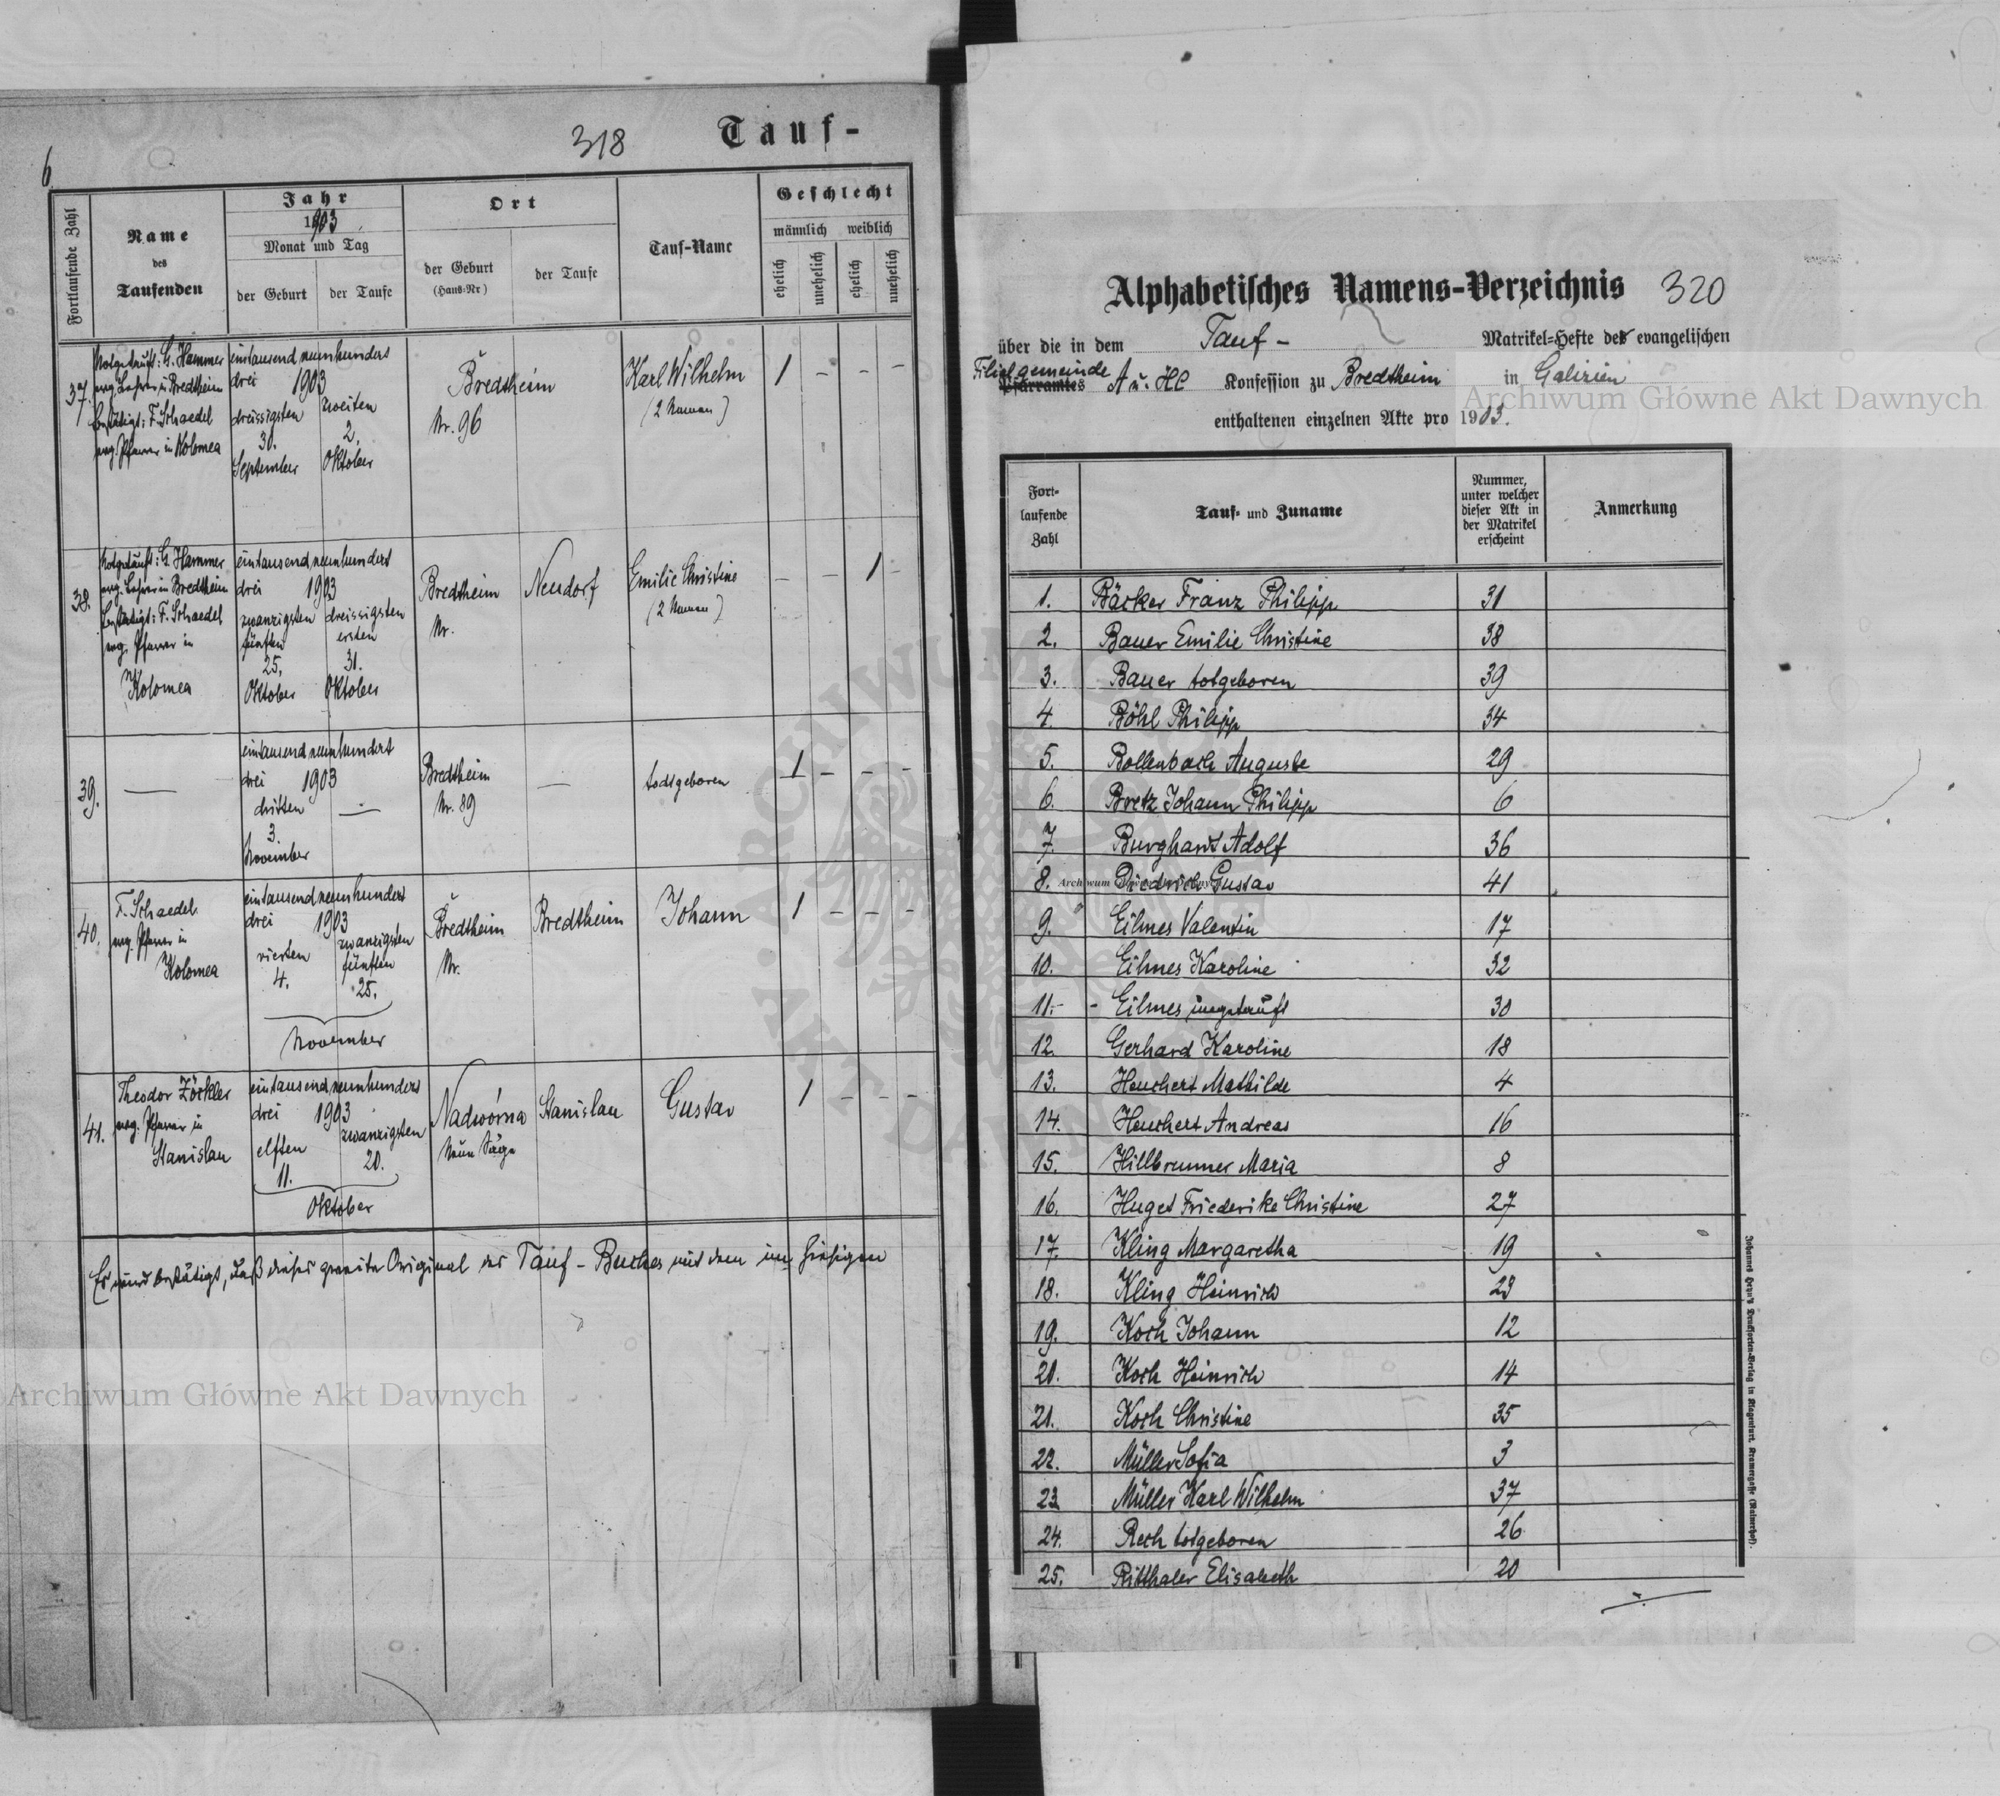 6
318
Tauf-
Fortlaufende Zahl
Name
des
Taufenden
Jahr
1903
Monat und Tag
der Geburt
der Taufe
Ort
der Geburt
(Haus-Nr)
der Taufe
Tauf-Name
Geschlecht
männlich weiblich
ehelich
unehelich
ehelich
unehelich
37.
Notgetauft: G. Hammer
evg. Lehrer in Bredtheim
bestätigt: F. Schaedel
evg. Pfarrer in Kolomea
eintausendneunhundert
drei 1903
dreissigsten
30.
September
zweiten
2.
Oktober
Bredtheim
Nr. 96
Karl Wilhelm
(2 Namen)
1 - - -
38.
Notgetauft: G. Hammer
evg. Lehrer in Bredtheim
bestätigt: F. Schaedel
evg. Pfarrer in
Kolomea
eintausendneunhundert
drei 1903
zwanzigsten
fünften
25.
Oktober
dreissigsten
ersten
31.
Oktober
Bredtheim
Nr.
Neudorf
Emilie Christine
(2 Namen)
- - 1 -
39.
—
eintausendneunhundert
drei 1903
dritten
3.
November
—
Bredtheim
Nr. 89
—
todtgeboren
1 - - -
40.
F. Schaedel
evg. Pfarrer in
Kolomea
eintausendneunhundert
drei 1903
vierten
4.
zwanzigsten
fünften
25.
November
Bredtheim
Nr.
Bredtheim
Johann
1 - - -
41.
Theodor Zöckler
evg. Pfarrer in
Stanislau
eintausendneunhundert
drei 1903
elften
11.
zwanzigsten
20.
Oktober
Nadwórna
Neue Säge
Stanislau
Gustav
1 - - -
Es wird bestätigt, daß dieses zweite Original des Tauf-Buches mit dem im hiesigen
Archiwum Główne Akt Dawnych
Alphabetisches Namens-Verzeichnis 320
über die in dem Tauf- Matrikel-Hefte des evangelischen
Filialgemeinde
Pfarramtes A u. HC Konfession zu Bredtheim in Galizien
Archiwum Główne Akt Dawnych
enthaltenen einzelnen Akte pro 1903.
Fort-
laufende
Zahl
Tauf- und Zuname
Nummer,
unter welcher
dieser Akt in
der Matrikel
erscheint
Anmerkung
1. Bäcker Franz Philipp 31
2. Bauer Emilie Christine 38
3. Bauer totgeboren 39
4 Böhl Philipp 34
5. Bollenbach Auguste 29
6. Bretz Johann Philipp 6
7. Burghardt Adolf 36
8. Diedrich Gustav 41
9. Eilmes Valentin 17
10. Eilmes Karoline 32
11. - Eilmes ungetauft 30
12. Gerhard Karoline 18
13. Heuchert Mathilde 4
14. Heuchert Andreas 16
15. Hillbrunner Maria 8
16. Huget Friederike Christine 27
17. Kling Margaretha 19
18. Kling Heinrich 23
19. Koch Johann 12
20. Koch Heinrich 14
21. Koch Christine 35
22. Müller Sofia 3
23 Müller Karl Wilhelm 37
24. Rech totgeboren 26
25. Ritthaler Elisabeth 20